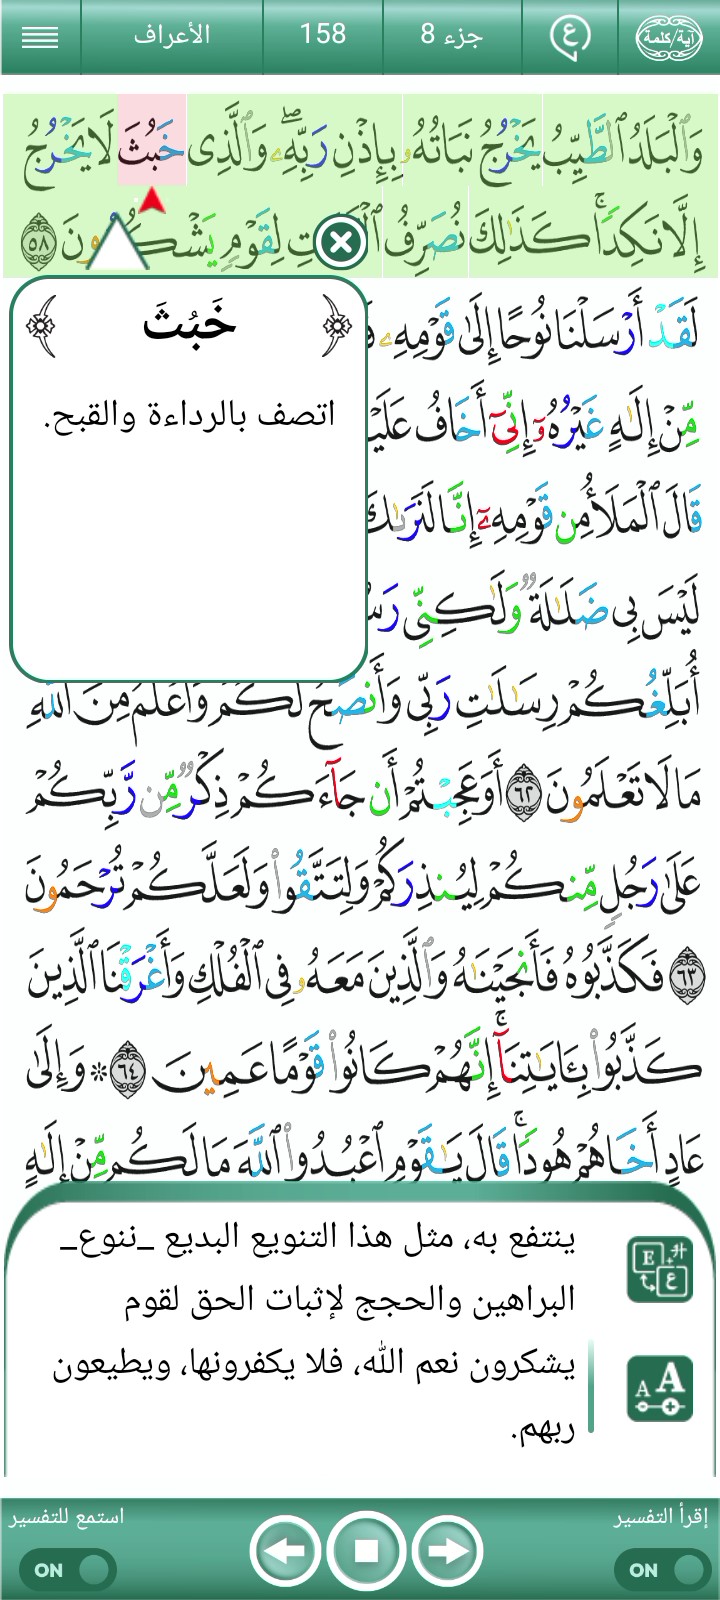 آية/كلمة
ع
جزء 8
158
الأعراف
وَٱلْبَلَدُ ٱلطَّيِّبُ يَخْرُجُ نَبَاتُهُۥ بِإِذْنِ رَبِّهِۦۖ وَٱلَّذِى خَبُثَ لَا يَخْرُجُ
إِلَّا نَكِدًاۚ كَذَٰلِكَ نُصَرِّفُ لِقَوْمٍ يَشْكُرُونَ ٥٨
خَبُثَ
اتصف بالرداءة والقبح.
لَقَدْ أَرْسَلْنَا نُوحًا إِلَىٰ قَوْمِهِۦ
مِّنْ إِلَٰهٍ غَيْرُهُۥٓ إِنِّىٓ أَخَافُ
قَالَ ٱلْمَلَأُ مِن قَوْمِهِۦٓ إِنَّا لَنَرَىٰكَ
لَيْسَ بِى ضَلَٰلَةٌ وَلَٰكِنِّى
أُبَلِّغُكُمْ رِسَٰلَٰتِ رَبِّى وَأَنصَحُ لَكُمْ وَأَعْلَمُ مِنَ ٱللَّهِ
مَا لَا تَعْلَمُونَ ٦٢ أَوَعَجِبْتُمْ أَن جَآءَكُمْ ذِكْرٌ مِّن رَّبِّكُمْ
عَلَىٰ رَجُلٍ مِّنكُمْ لِيُنذِرَكُمْ وَلِتَتَّقُوا۟ وَلَعَلَّكُمْ تُرْحَمُونَ
٦٣ فَكَذَّبُوهُ فَأَنجَيْنَٰهُ وَٱلَّذِينَ مَعَهُۥ فِى ٱلْفُلْكِ وَأَغْرَقْنَا ٱلَّذِينَ
كَذَّبُوا۟ بِـَٔايَٰتِنَآۚ إِنَّهُمْ كَانُوا۟ قَوْمًا عَمِينَ ٦٤ * وَإِلَىٰ
عَادٍ أَخَاهُمْ هُودًاۚ قَالَ يَٰقَوْمِ ٱعْبُدُوا۟ ٱللَّهَ مَا لَكُم مِّنْ إِلَٰهٍ
ينتفع به، مثل هذا التنويع البديع _ننوع_
البراهين والحجج لإثبات الحق لقوم
يشكرون نعم الله، فلا يكفرونها، ويطيعون
ربهم.
إقرأ التفسير
ON
استمع للتفسير
ON